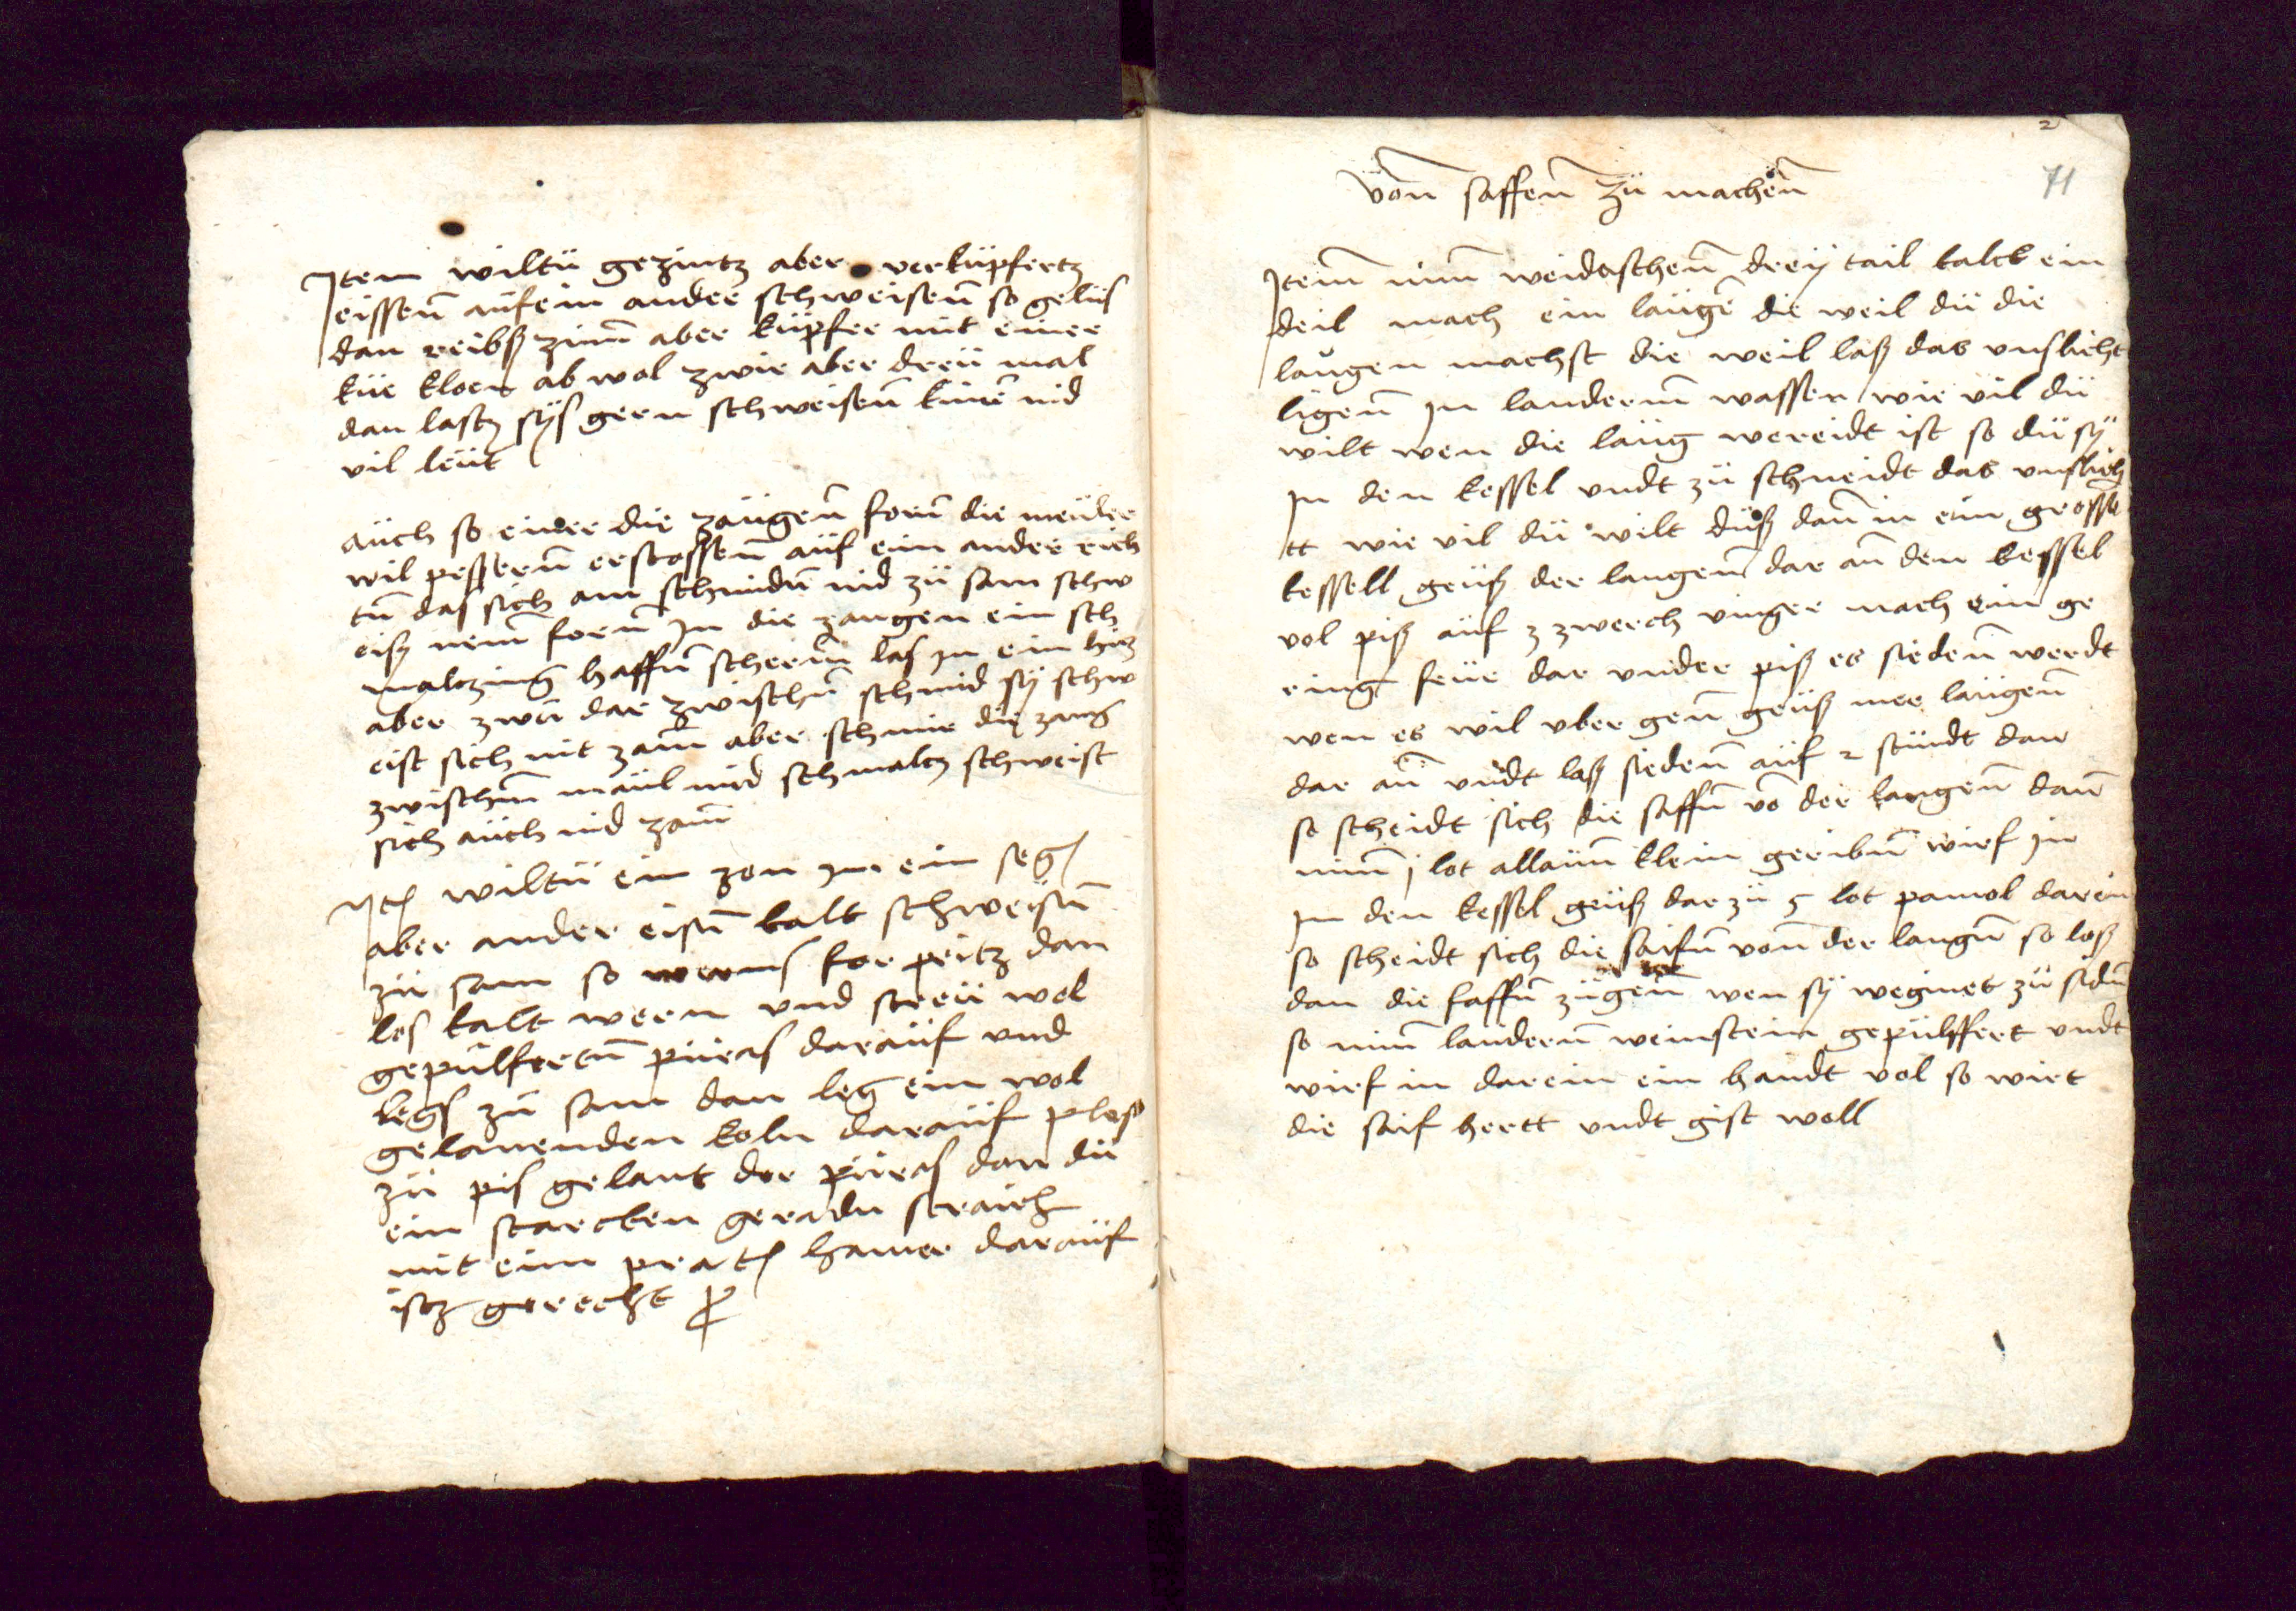 Item wiltü gezintz aber verküpfertz
eissenn auf ein ander schweisenn so gelüs
dan reibß zinn aber küpfer mit einer
küe kloen ab wol zwir aber dreü mal
dan lastz sÿs gern schweisenn kinen nid
vil leüt
auch so einer die zangenn forn die meüler
wil pessernn erstossenn auf ein ander rich
tn das sich am schmidn nid zü sam schw
eiß nem forn In die zangen ein sch
maltzing haffn scherm las In ein hitz
aber zwu dar zwischn schmid sÿ schw
eist sich nit zam aber schmir die zang
zwischm maul mid schmaltz schweist
sich auch nid zam
Item wiltü ein zen In ein seg
aber ander eisn kalt schweisn
zü sam so werms for pritz dan
los kalt wern vnd streü wol
gepülfertn püras darauf vnd
legs zü sam dan leg ein wol
gelauenden koln darauf plos
zü pis gelaut der püras dan dü
ein starcken geradn straich
mit eim prat hamer darauf
istz gerecht
2
71
von saffenn zü machenn
Item nim weidaschenn dreÿ tail kalck ein
deil mach ein laügen die weil dü die
laugen machst die weil laß das vnslicht
ligenn In lauderm wasser wie vil dü
wilt wen die laüg wereidt ist so dü sÿ
In den kessel vndt zü schneidt das vnslich
tt wie vil dü wilt düß dann in ein grossen
kessell geüß der laugenn dar an den kessel
vol piß auf 3 zwerch vinger mach ein ge
ring feür dar vnder piß es siedenn werdt
wen es wil vber genn geüß mer laügenn
dar an vndt laß siedenn auf 2 stündt dan
so scheidt sich die saffn von der laugenn dann
nim j lot allaun klein geribn wirf In
In den kessel geüß dar zü 5 lot pamol darein
so scheidt sich die saifn vonn der laugn so loß
dan die saffn zügenn wen sÿ weginet zü sidn
so nim lauternn weinstein gepülffert vndt
wirf in darein ein handt vol so wirt
die saif hertt vndt gist woll